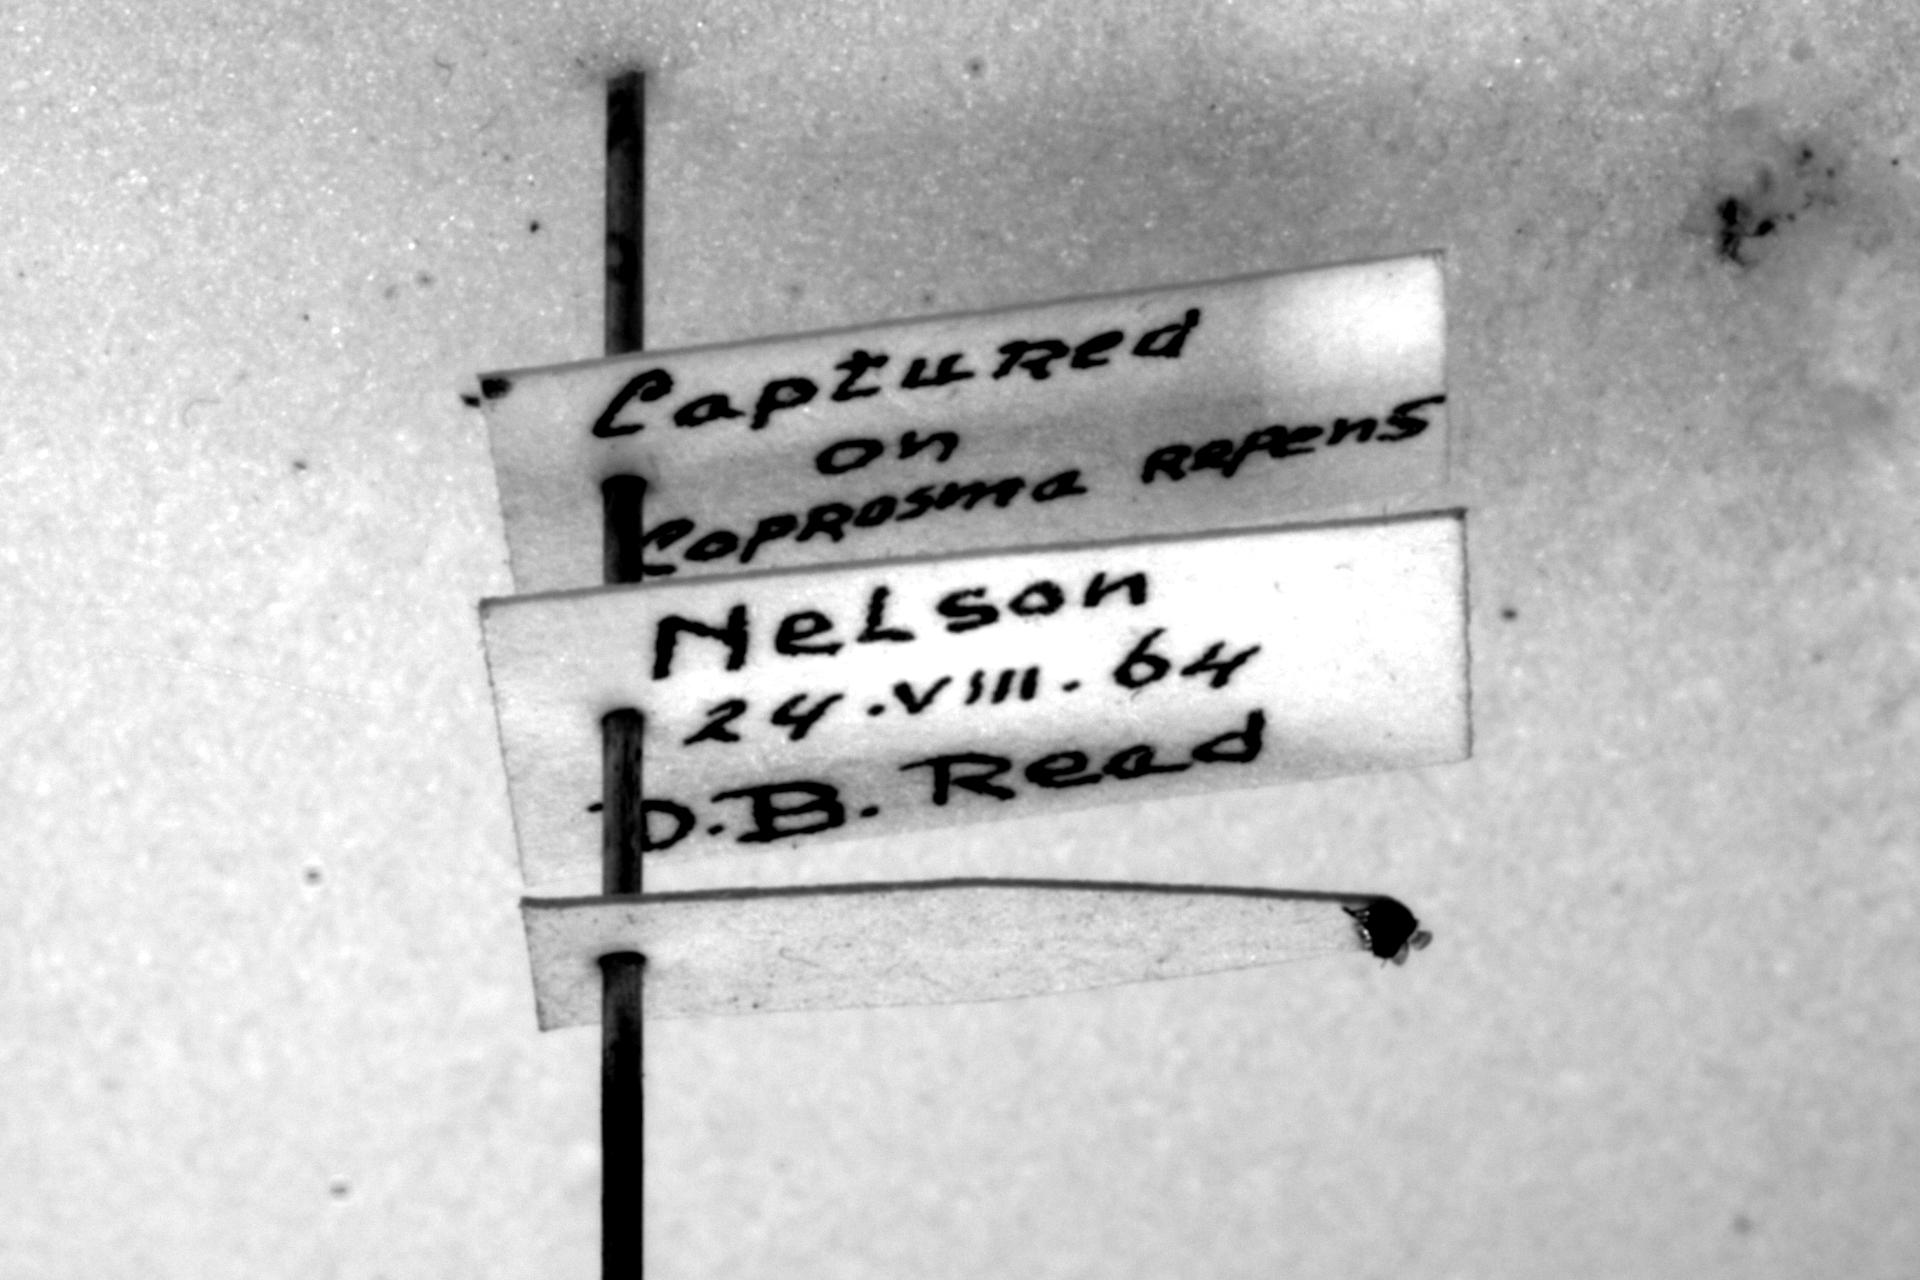 Captured
on
Coprosma repens
Nelson
24.VIII.64
D.B. Read